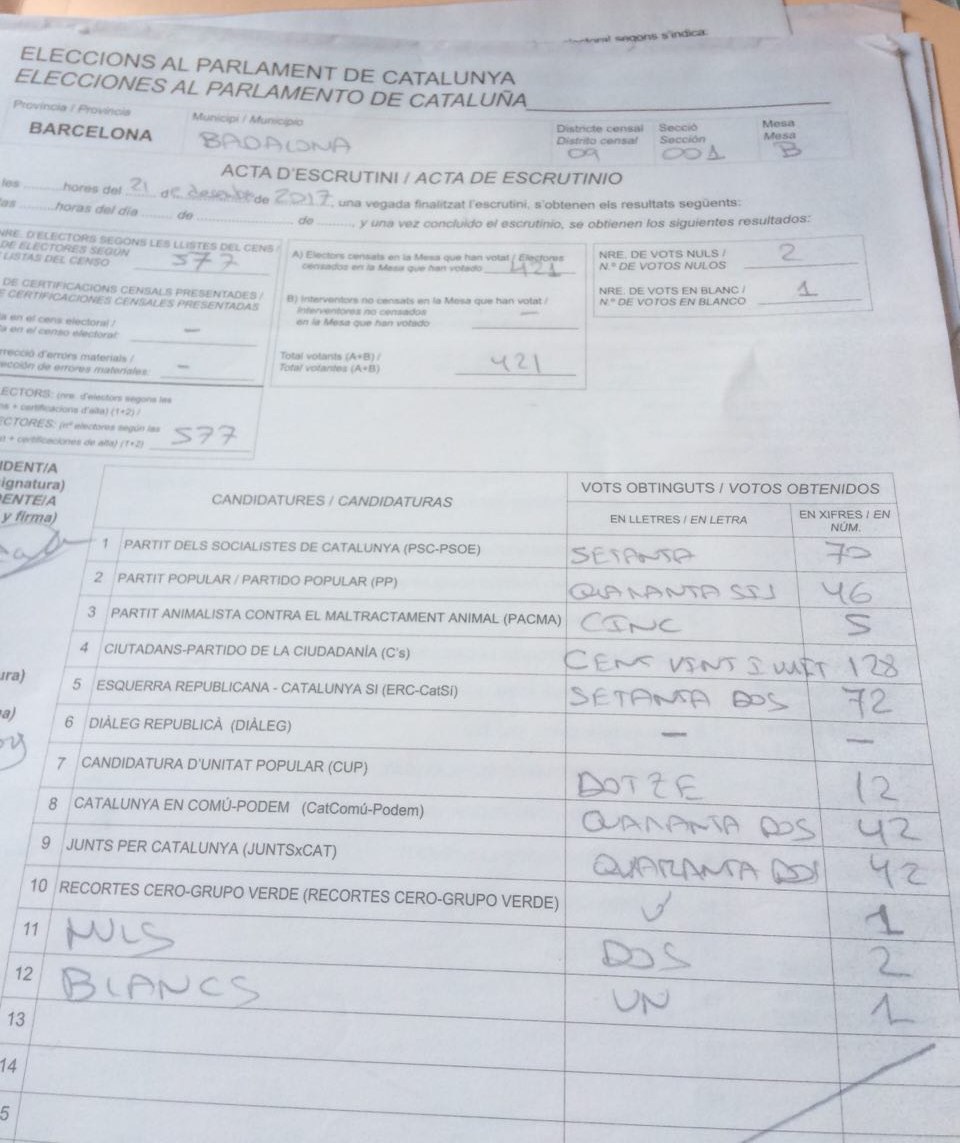 segons s'indica:
ELECCIONS AL PARLAMENT DE CATALUNYA
ELECCIONES AL PARLAMENTO DE CATALUÑA
Província / Provincia
BARCELONA
Municipi / Municipio
BADALONA
Districte censal
Distrito censal
09
Secció
Sección
001
Mesa
Mesa
B
ACTA D'ESCRUTINI / ACTA DE ESCRUTINIO
les ......... hores del 21 de desembre de 2017, una vegada finalitzat l'escrutini, s'obtenen els resultats següents:
las ......... horas del día ......... de ......... de ........., y una vez concluido el escrutinio, se obtienen los siguientes resultados:
NRE. D'ELECTORS SEGONS LES LLISTES DEL CENS /
DE ELECTORES SEGÚN
LISTAS DEL CENSO
577
DE CERTIFICACIONS CENSALS PRESENTADES /
CERTIFICACIONES CENSALES PRESENTADAS
en el cens electoral /
en el censo electoral:
—
d'errors materials /
de errores materiales:
—
ECTORS: (nre. d'electors segons les
+ certificacions d'alta) (1+2) /
ECTORES: (nº electores según las
+ certificaciones de alta) (1+2)
577
A) Electors censats en la Mesa que han votat / Electores
censados en la Mesa que han votado
421
B) Interventors no censats en la Mesa que han votat /
Interventores no censados
en la Mesa que han votado
—
Total votants (A+B) /
Total votantes (A+B)
421
NRE. DE VOTS NULS /
N.º DE VOTOS NULOS
2
NRE. DE VOTS EN BLANC /
N.º DE VOTOS EN BLANCO
1
IDENT/A
signatura)
ENTE/A
y firma)
ura)
a)
CANDIDATURES / CANDIDATURAS
VOTS OBTINGUTS / VOTOS OBTENIDOS
EN LLETRES / EN LETRA
EN XIFRES / EN
NÚM.
1 PARTIT DELS SOCIALISTES DE CATALUNYA (PSC-PSOE) SETANTA 70
2 PARTIT POPULAR / PARTIDO POPULAR (PP) QUARANTA SIS 46
3 PARTIT ANIMALISTA CONTRA EL MALTRACTAMENT ANIMAL (PACMA) CINC 5
4 CIUTADANS-PARTIDO DE LA CIUDADANÍA (C's) CENT VINT I VUIT 128
5 ESQUERRA REPUBLICANA - CATALUNYA SI (ERC-CatSí) SETANTA DOS 72
6 DIÀLEG REPUBLICÀ (DIÀLEG) — —
7 CANDIDATURA D'UNITAT POPULAR (CUP) DOTZE 12
8 CATALUNYA EN COMÚ-PODEM (CatComú-Podem) QUARANTA DOS 42
9 JUNTS PER CATALUNYA (JUNTSxCAT) QUARANTA DOS 42
10 RECORTES CERO-GRUPO VERDE (RECORTES CERO-GRUPO VERDE) 1
11 NULS DOS 2
12 BLANCS UN 1
13
14
5